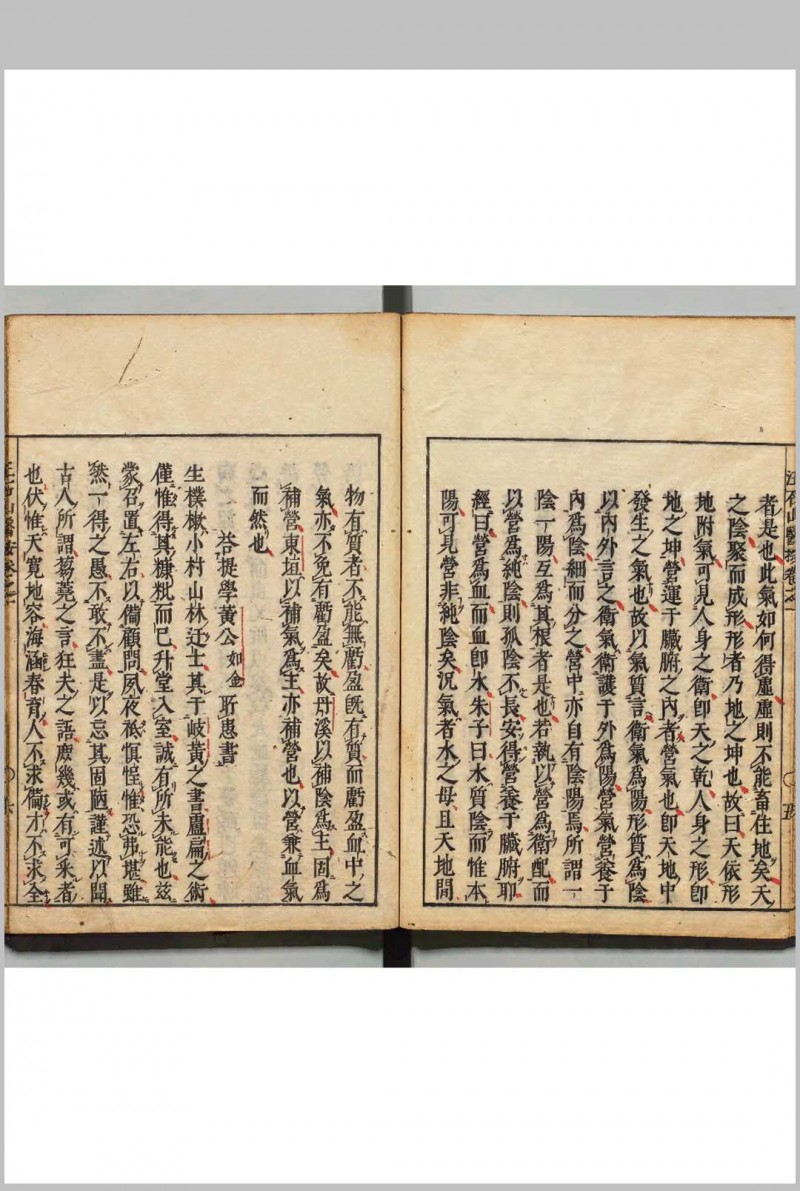 者是也此氣如何得虛虛則不能畜住地矣天
之陰聚而成形形者乃地之坤也故曰天依形
地附氣可見人身之衛卽天之乾人身之形卽
地之坤營運于臟腑之內者營氣也卽天地中
發生之氣也故以氣質言衛氣爲陽形質爲陰
以內外言之衛氣衛護于外爲陽營氣營養于
內爲陰細而分之營中亦自有陰陽焉所謂一
陰一陽互爲其根者是也若執以營爲衛配而
以營爲純陰則孤陰不長安得營養于臟腑耶
經曰營爲血而血卽水朱子曰水質陰而惟本
陽可見營非純陰矣況氣者水之母且天地間
物有質者不能無虧盈旣有質而虧盈血中之
氣亦不免有虧盈矣故丹溪以補陰爲主固爲
補營東垣以補氣爲主亦補營也以營兼血氣
而然也
荅提學黃公如金所惠書
生樸樕小村山林迂士其于岐黃之書盧扁之術
僅惟得其糠粃而已升堂入室誠有所未能也玆
蒙召置左右以備顧問夙夜祗懼惶惟恐弗堪雖
然一得之愚不敢不盡是以忘其固陋謹述以聞
古人所謂芻蕘之言狂夫之語庶幾或有可采者
也伏惟天寛地容海涵春育人不求備才不求全